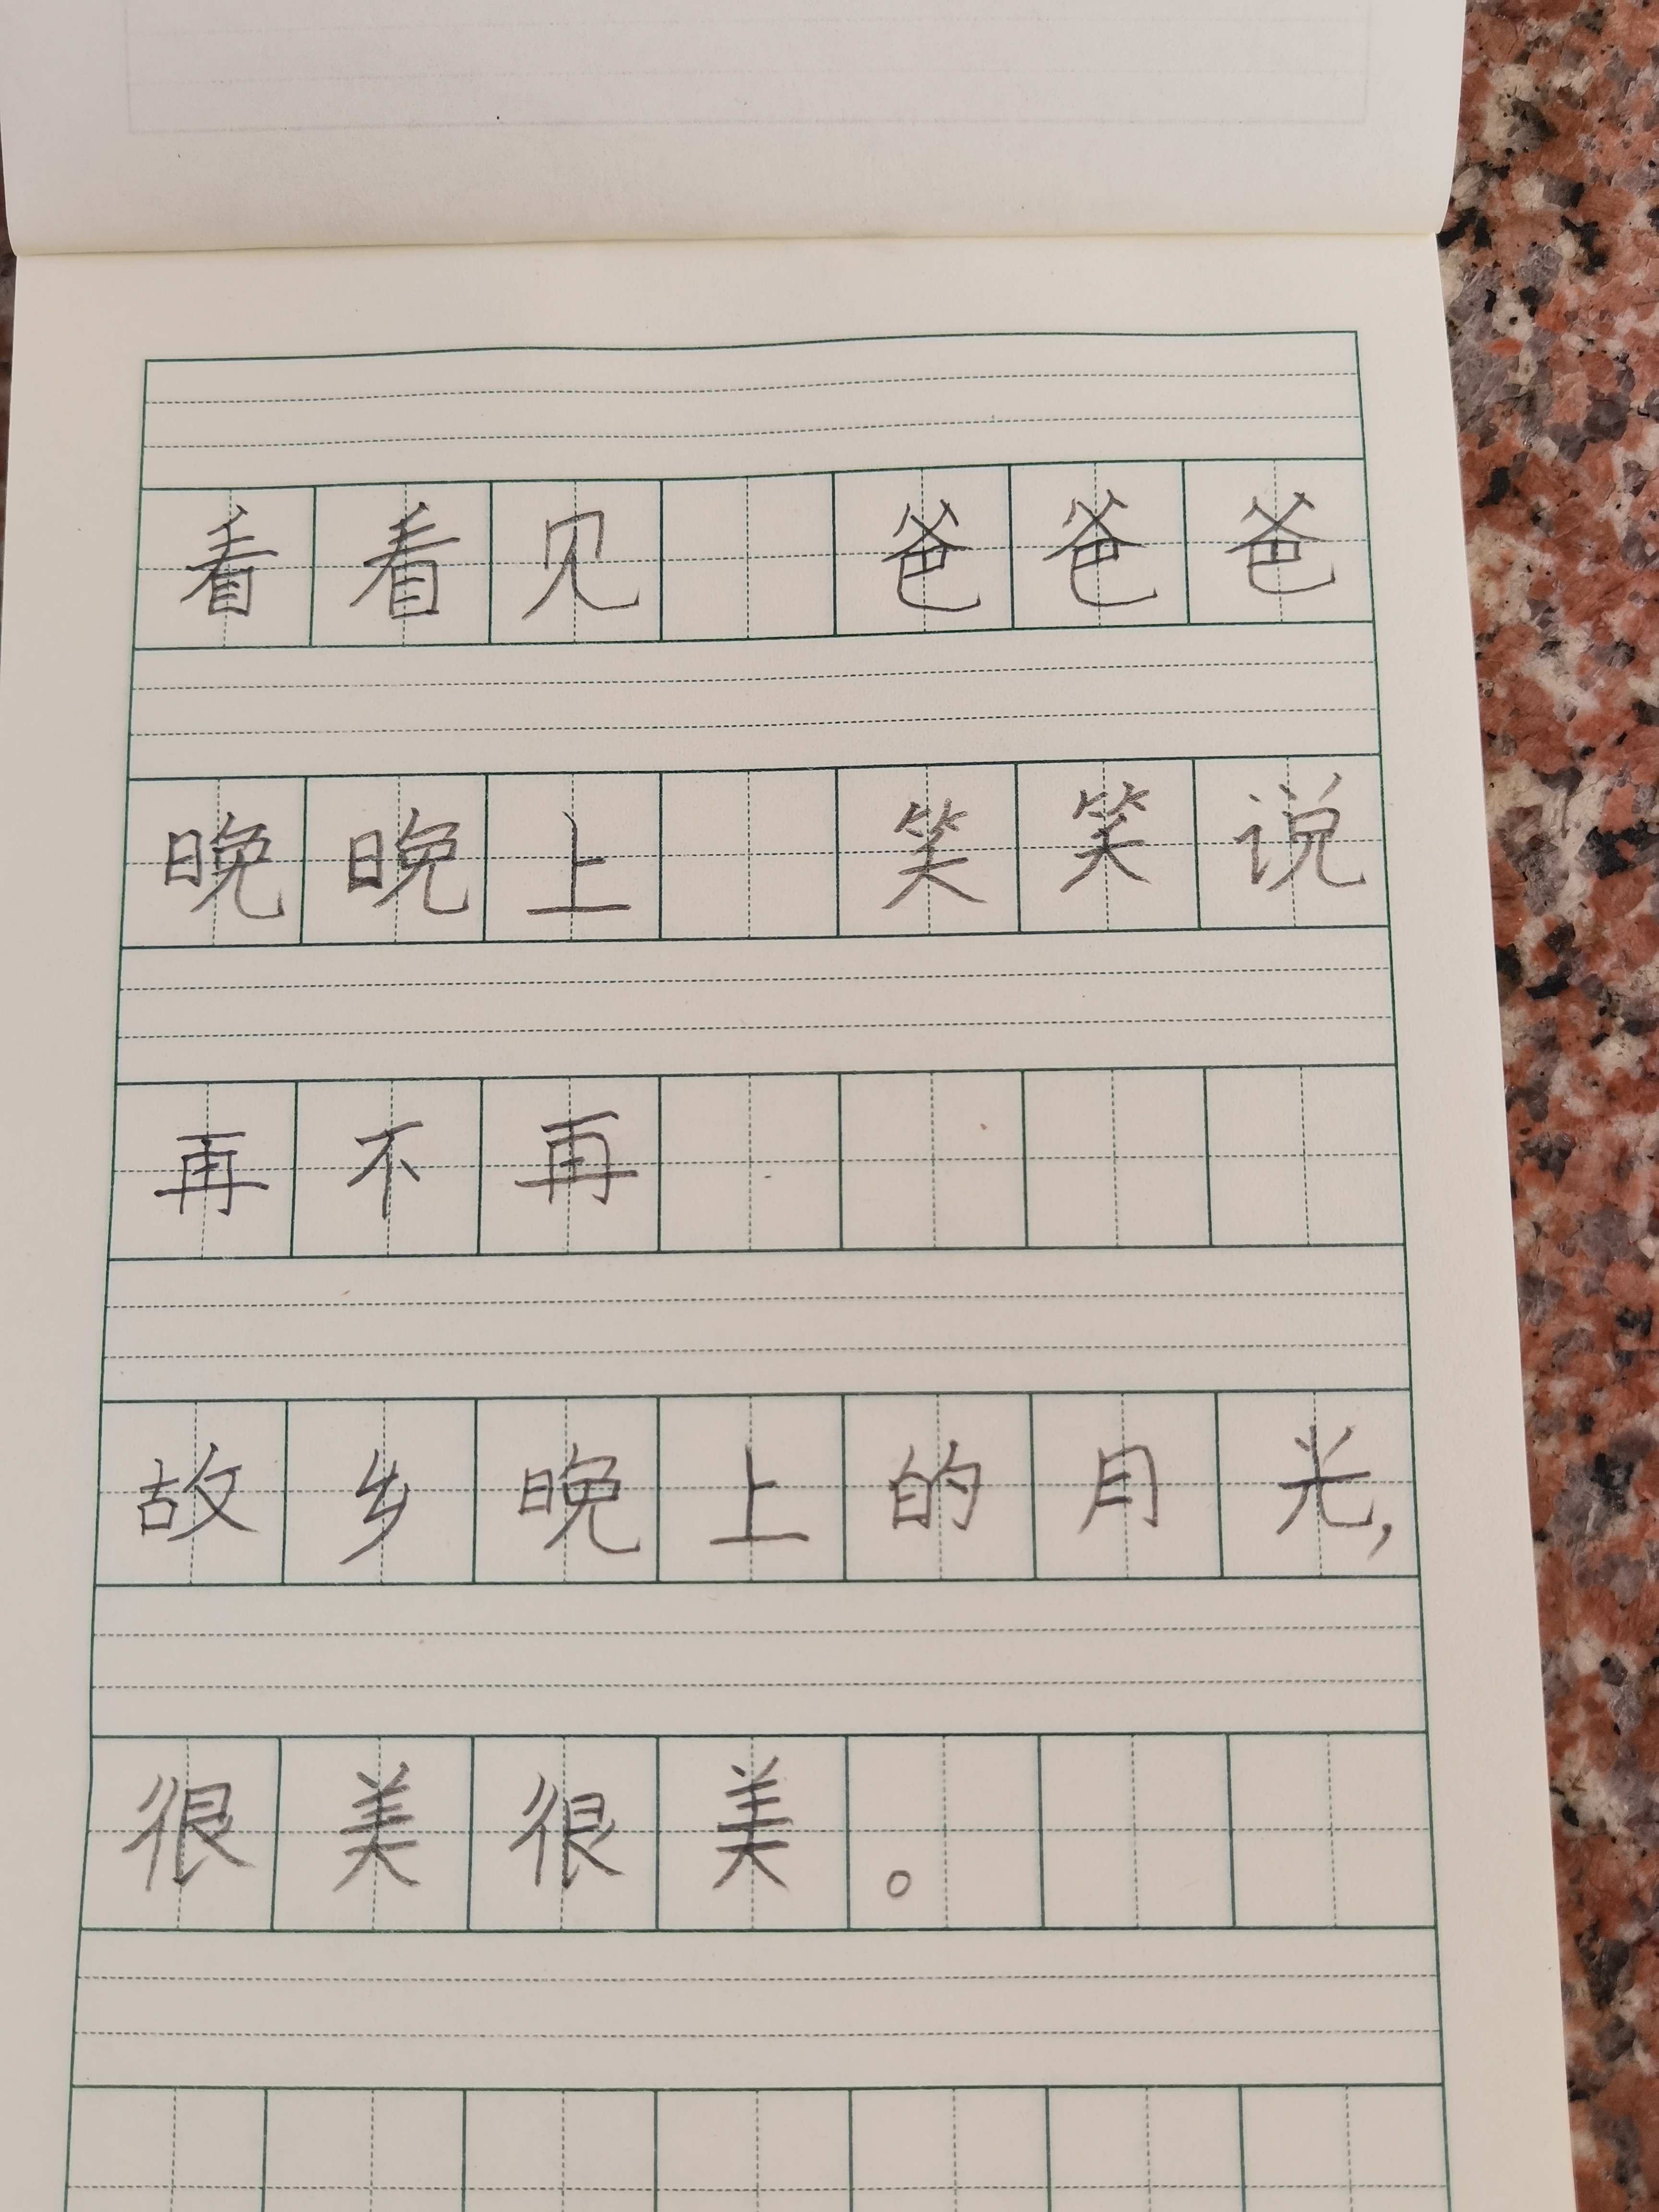 看看见 爸爸爸
晚晚上 笑笑说
再不再
故乡晚上的月光,
很美很美。